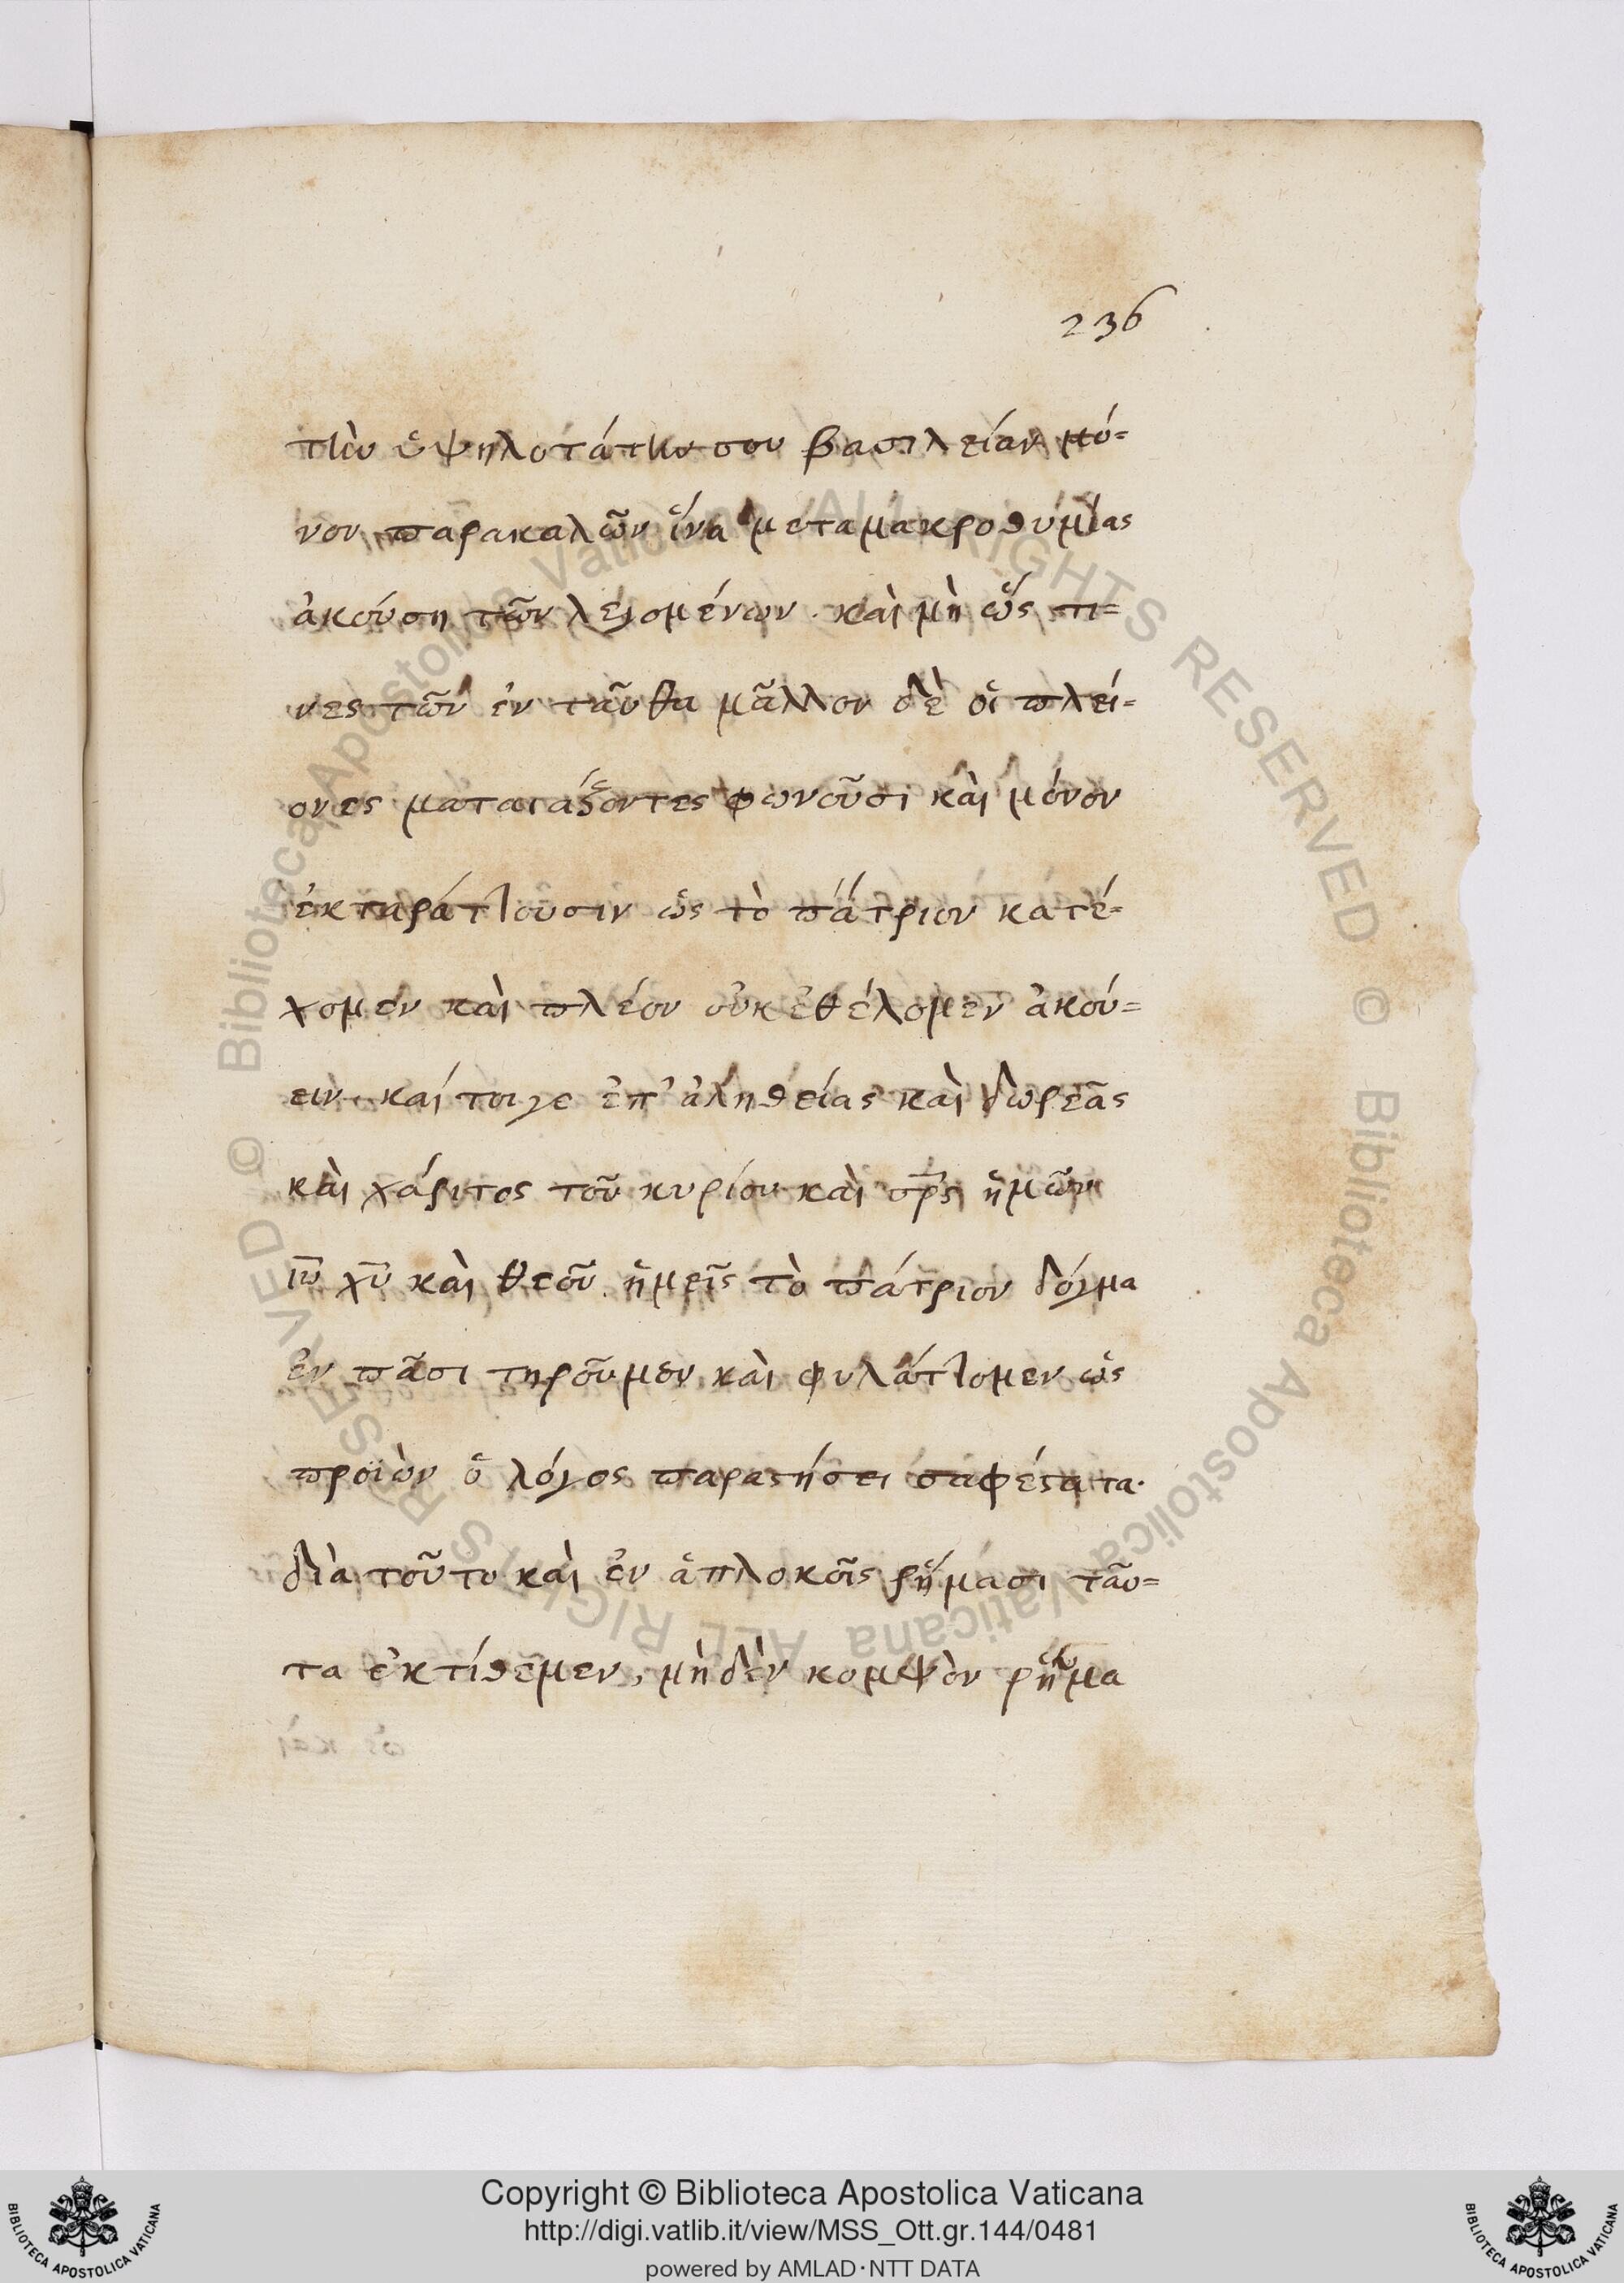 236
τὴν ὑψηλοτάτην σου βασιλείαν μό=
νον παρακαλῶν ἵνα μετα μακροθυμίας
ἀκούση τῶν λεγομένων. καὶ μὴ ὥς τι=
νες τῶν ἐν ταῦθα μᾶλλον δὲ οἱ πλεί=
ονες ματαιάζοντες φωνοῦσι καὶ μόνον
ἐκταράττουσιν ὡς τὸ πάτριον κατέ=
χομεν καὶ πλέον οὐκ ἐθέλομεν ἀκού=
ειν. καί τοιγε ἐπ' ἀληθείας καὶ δωρεᾶς
καὶ χάριτος τοῦ κυρίου καὶ σρ̅ς ἡμῶν
ιυ̅ χυ̅ καὶ θεοῦ. ἡμεῖς τὸ πάτριον δόγμα
ἐν πᾶσι τηροῦμεν καὶ φυλάττομεν ὡς
προϊὼν ὁ λόγος παραστήσει σαφέστατα.
διὰ τοῦτο καὶ ἐν ἁπλοκοῖς ῥήμασι ταῦ=
τα ἐκτίθεμεν, μὴ δὲν κομψὸν ῥῆμα
Copyright © Biblioteca Apostolica Vaticana
http://digi.vatlib.it/view/MSS_Ott.gr.144/0481
powered by AMLAD·NTT DATA
BIBLIOTECA APOSTOLICA VATICANA
BIBLIOTECA APOSTOLICA VATICANA
© Biblioteca Apostolica Vaticana ALL RIGHTS RESERVED © Biblioteca Apostolica Vaticana ALL RIGHTS RESERVED